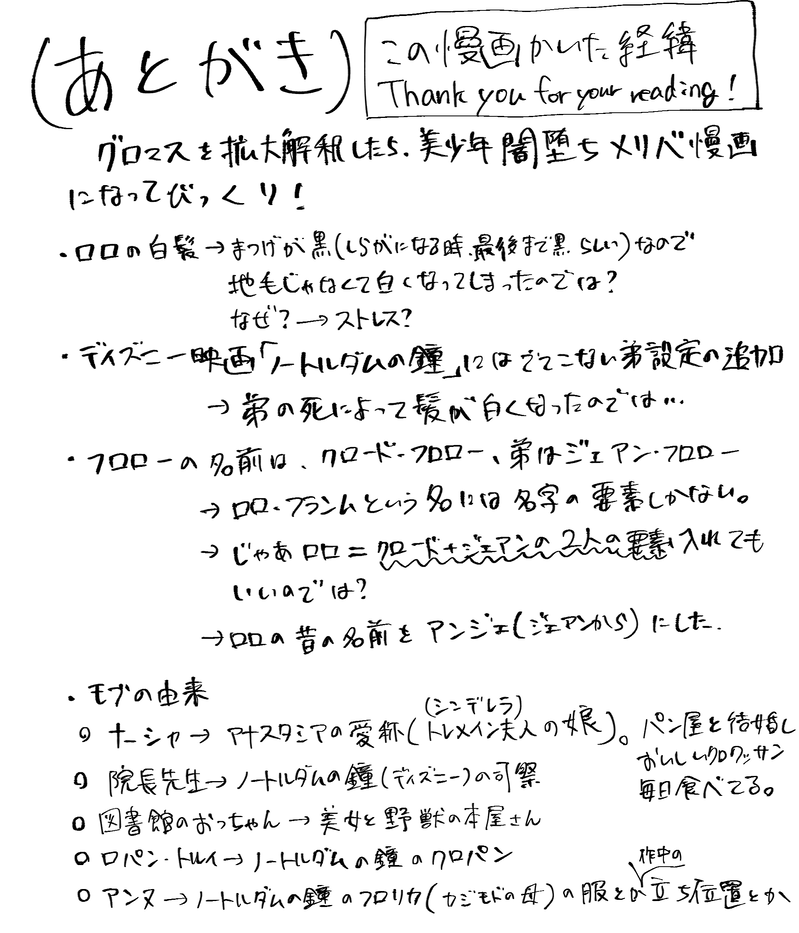 (あとがき)
この慢画かいた経緯
Thank you for your reading!
グロマスを拡大解釈したら、美少年闇堕ちメリバ慢画
になってびっくり!
・ロロの白髪→まつげが黒(しらがになる時、最後まで黒らしい)なので
地毛じゃなくて白くなってしまったのでは?
なぜ?→ストレス?
・ディズニー映画「ノートルダムの鐘」にはでてこない弟設定の追加
→弟の死によって髪が白くなったのでは…
・フロローの名前は、クロード・フロロー、弟はジェアン・フロロー
→ロロ・フランムという名には名字の要素しかない。
→じゃあロロ=クロード+ジェアンの2人の要素入れても
いいのでは?
→ロロの昔の名前をアンジェ(ジェアンから)にした.
・モブの由来
○ナーシャ→アナスタシアの愛称(トレメイン夫人の娘)。
(シンデレラ)
パン屋と結婚し
おいしいクロワッサン
毎日食べてる。
○院長先生→ノートルダムの鐘(ディズニー)の司祭
○図書館のおっちゃん→美女と野獣の本屋さん
○ロパン・トルイ→ノートルダムの鐘のクロパン
○アンヌ→ノートルダムの鐘のフロリカ(カジモドの母)の服とか作中の立ち位置とか